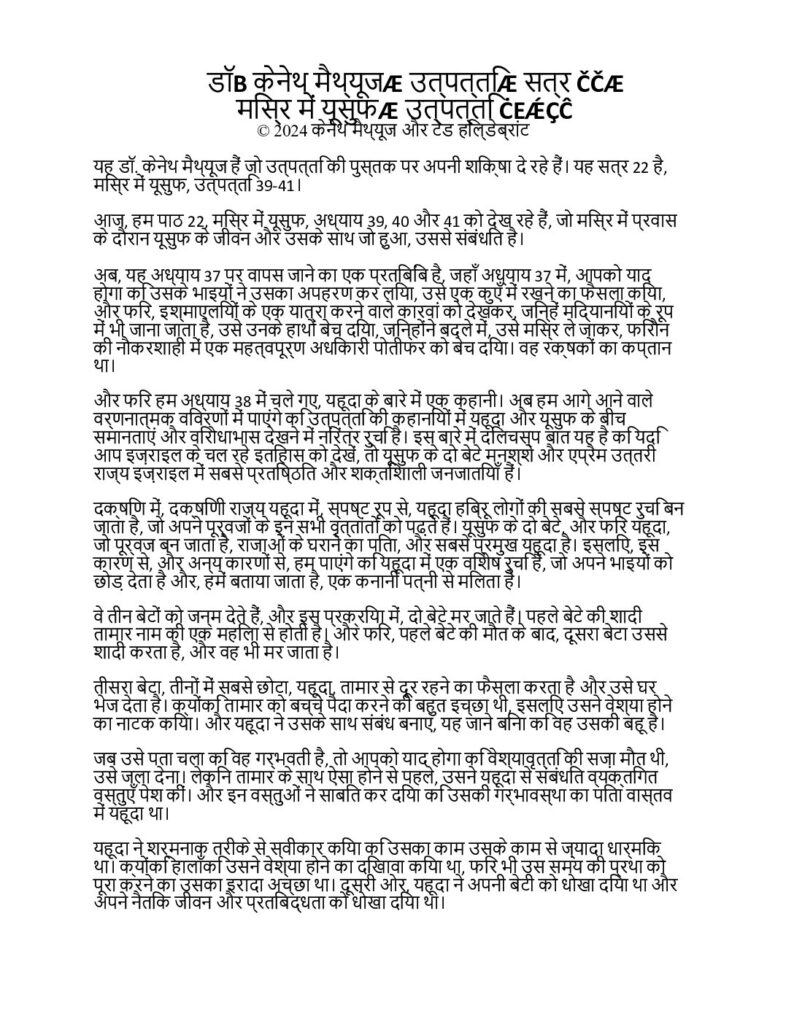 डॉB केनेथ मैथ्यूजÆ उत्पत्तिÆ सत्र ČČÆ
मिस्र में यूसुफÆ उत्पत्ति ČEǼÇĈ
© 2024 केनेथ मैथ्यूज और टेड हिल्डेब्रांट
यह डॉ. केनेथ मैथ्यूज हैं जो उत्पत्ति की पुस्तक पर अपनी शिक्षा दे रहे हैं। यह सत्र 22 है,
मिस्र में यूसुफ, उत्पत्ति 39-41।
आज, हम पाठ 22, मिस्र में यूसुफ, अध्याय 39, 40 और 41 को देख रहे हैं, जो मिस्र में प्रवास
के दौरान यूसुफ के जीवन और उसके साथ जो हुआ, उससे संबंधित है।
अब, यह अध्याय 37 पर वापस जाने का एक प्रतिबिंब है, जहाँ अध्याय 37 में, आपको याद
होगा कि उसके भाइयों ने उसका अपहरण कर लिया, उसे एक कुएँ में रखने का फैसला किया,
और फिर, इश्माएलियों के एक यात्रा करने वाले कारवां को देखकर, जिन्हें मिद्यानियों के रूप
में भी जाना जाता है, उसे उनके हाथों बेच दिया, जिन्होंने बदले में, उसे मिस्र ले जाकर, फिरौन
की नौकरशाही में एक महत्वपूर्ण अधिकारी पोतीफर को बेच दिया। वह रक्षकों का कप्तान
था।
और फिर हम अध्याय 38 में चले गए, यहूदा के बारे में एक कहानी। अब हम आगे आने वाले
वर्णनात्मक विवरणों में पाएंगे कि उत्पत्ति की कहानियों में यहूदा और यूसुफ के बीच
समानताएं और विरोधाभास देखने में निरंतर रुचि है। इस बारे में दिलचस्प बात यह है कि यदि
आप इज़राइल के चल रहे इतिहास को देखें, तो यूसुफ के दो बेटे मनश्शे और एप्रैम उत्तरी
राज्य इज़राइल में सबसे प्रतिष्ठित और शक्तिशाली जनजातियाँ हैं।
दक्षिण में, दक्षिणी राज्य यहूदा में, स्पष्ट रूप से, यहूदा हिब्रू लोगों की सबसे स्पष्ट रुचि बन
जाता है, जो अपने पूर्वजों के इन सभी वृत्तांतों को पढ़ते हैं। यूसुफ के दो बेटे, और फिर यहूदा,
जो पूर्वज बन जाता है, राजाओं के घराने का पिता, और सबसे प्रमुख यहूदा है। इसलिए, इस
कारण से, और अन्य कारणों से, हम पाएंगे कि यहूदा में एक विशेष रुचि है, जो अपने भाइयों को
छोड़ देता है और, हमें बताया जाता है, एक कनानी पत्नी से मिलता है।
वे तीन बेटों को जन्म देते हैं, और इस प्रक्रिया में, दो बेटे मर जाते हैं। पहले बेटे की शादी
तामार नाम की एक महिला से होती है। और फिर, पहले बेटे की मौत के बाद, दूसरा बेटा उससे
शादी करता है, और वह भी मर जाता है।
तीसरा बेटा, तीनों में सबसे छोटा, यहूदा, तामार से दूर रहने का फैसला करता है और उसे घर
भेज देता है। क्योंकि तामार को बच्चे पैदा करने की बहुत इच्छा थी, इसलिए उसने वेश्या होने
का नाटक किया। और यहूदा ने उसके साथ संबंध बनाए, यह जाने बिना कि वह उसकी बहू है।
जब उसे पता चला कि वह गर्भवती है, तो आपको याद होगा कि वेश्यावृत्ति की सजा मौत थी,
उसे जला देना। लेकिन तामार के साथ ऐसा होने से पहले, उसने यहूदा से संबंधित व्यक्तिगत
वस्तुएँ पेश कीं। और इन वस्तुओं ने साबित कर दिया कि उसकी गर्भावस्था का पिता वास्तव
में यहूदा था।
यहूदा ने शर्मनाक तरीके से स्वीकार किया कि उसका काम उसके काम से ज्यादा धार्मिक
था। क्योंकि हालाँकि उसने वेश्या होने का दिखावा किया था, फिर भी उस समय की प्रथा को
पूरा करने का उसका इरादा अच्छा था। दूसरी ओर, यहूदा ने अपनी बेटी को धोखा दिया था और
अपने नैतिक जीवन और प्रतिबद्धता को धोखा दिया था।